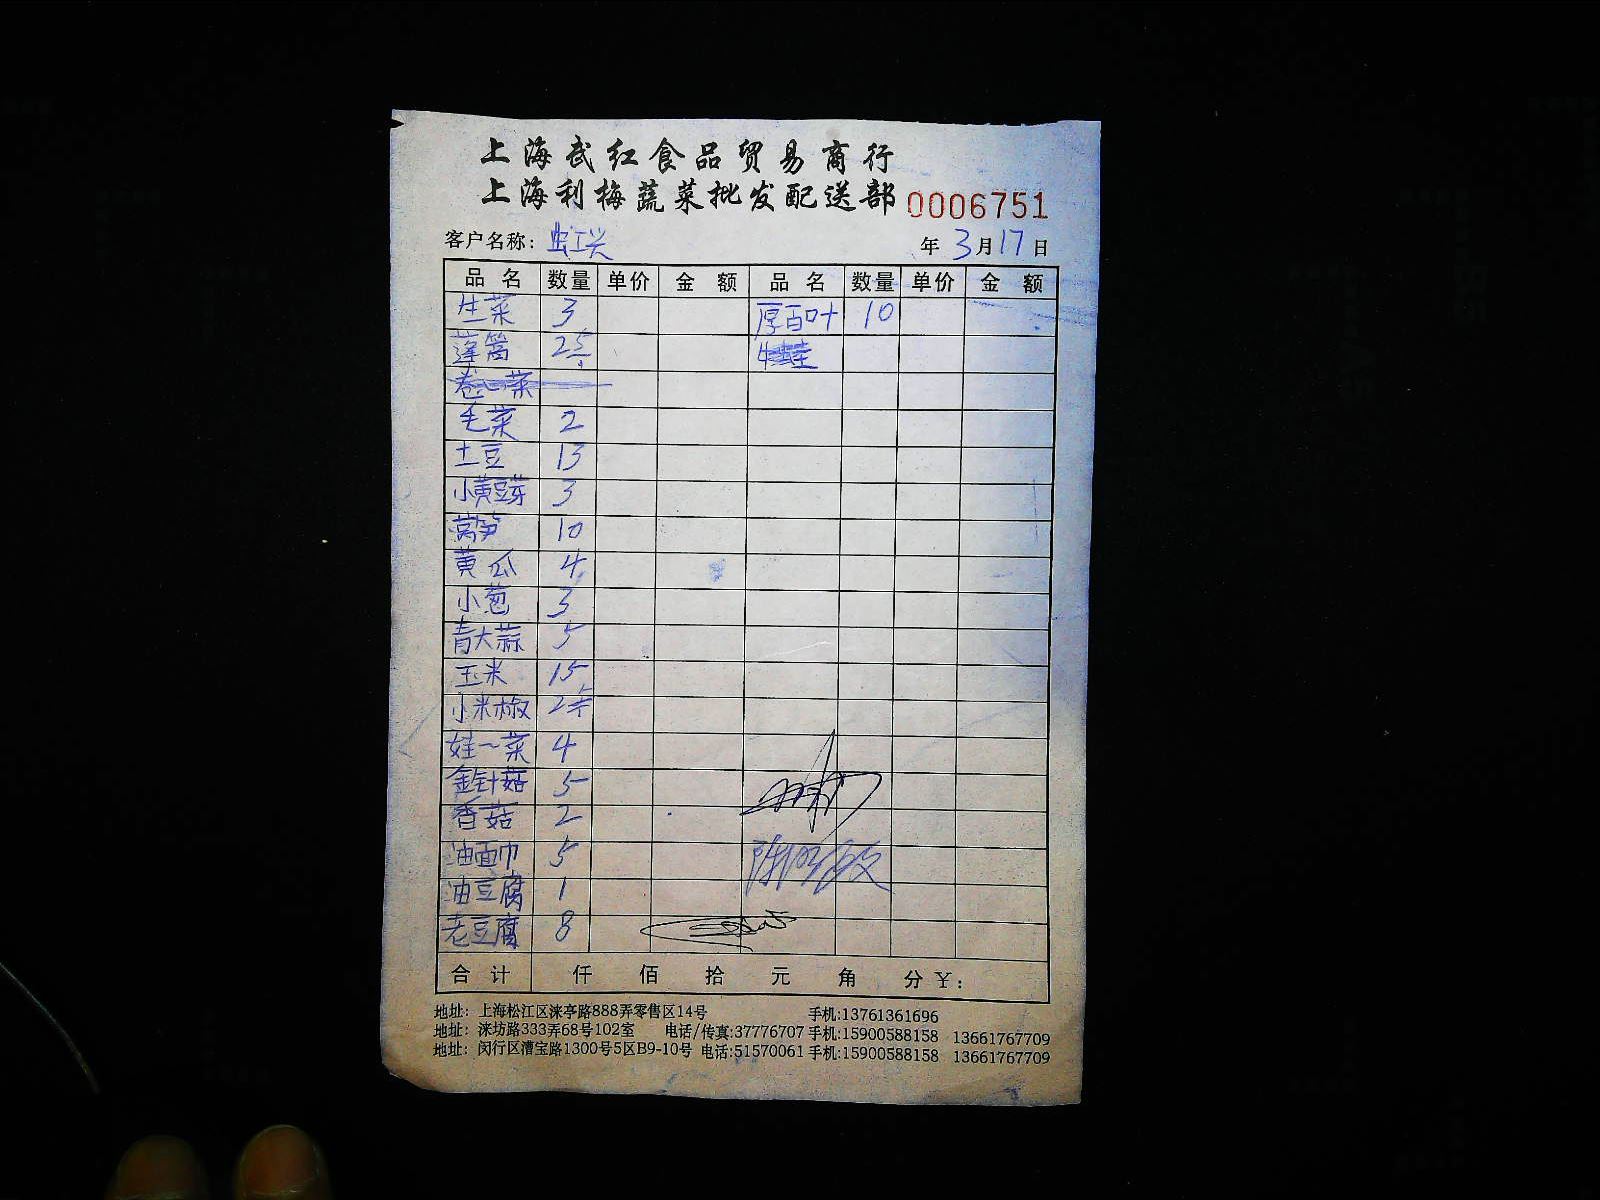 上海武红食品贸易商行
上海利梅蔬菜批发配送部 0006751
客户名称: 虹兴 年 3月17日
品名 数量 单价 金额 品名 数量 单价 金额
生菜 3 厚百叶 10
蓬蒿 25
卷心菜
毛菜 2
土豆 13
小黄豆芽 3
莴笋 10
黄瓜 4
小葱 3
青大蒜 5
玉米 15
小米椒
娃~菜 4
金针菇 5
香菇 2
油面巾 5
油豆腐 1
老豆腐 8
合计 仟 佰 拾 元 角 分 ¥:
地址: 上海松江区涞亭路888弄零售区14号 手机:13761361696
地址: 涞坊路333弄68号102室 电话/传真:37776707 手机:15900588158 13661767709
地址: 闵行区漕宝路1300号5区B9-10号 电话:51570061 手机:15900588158 13661767709